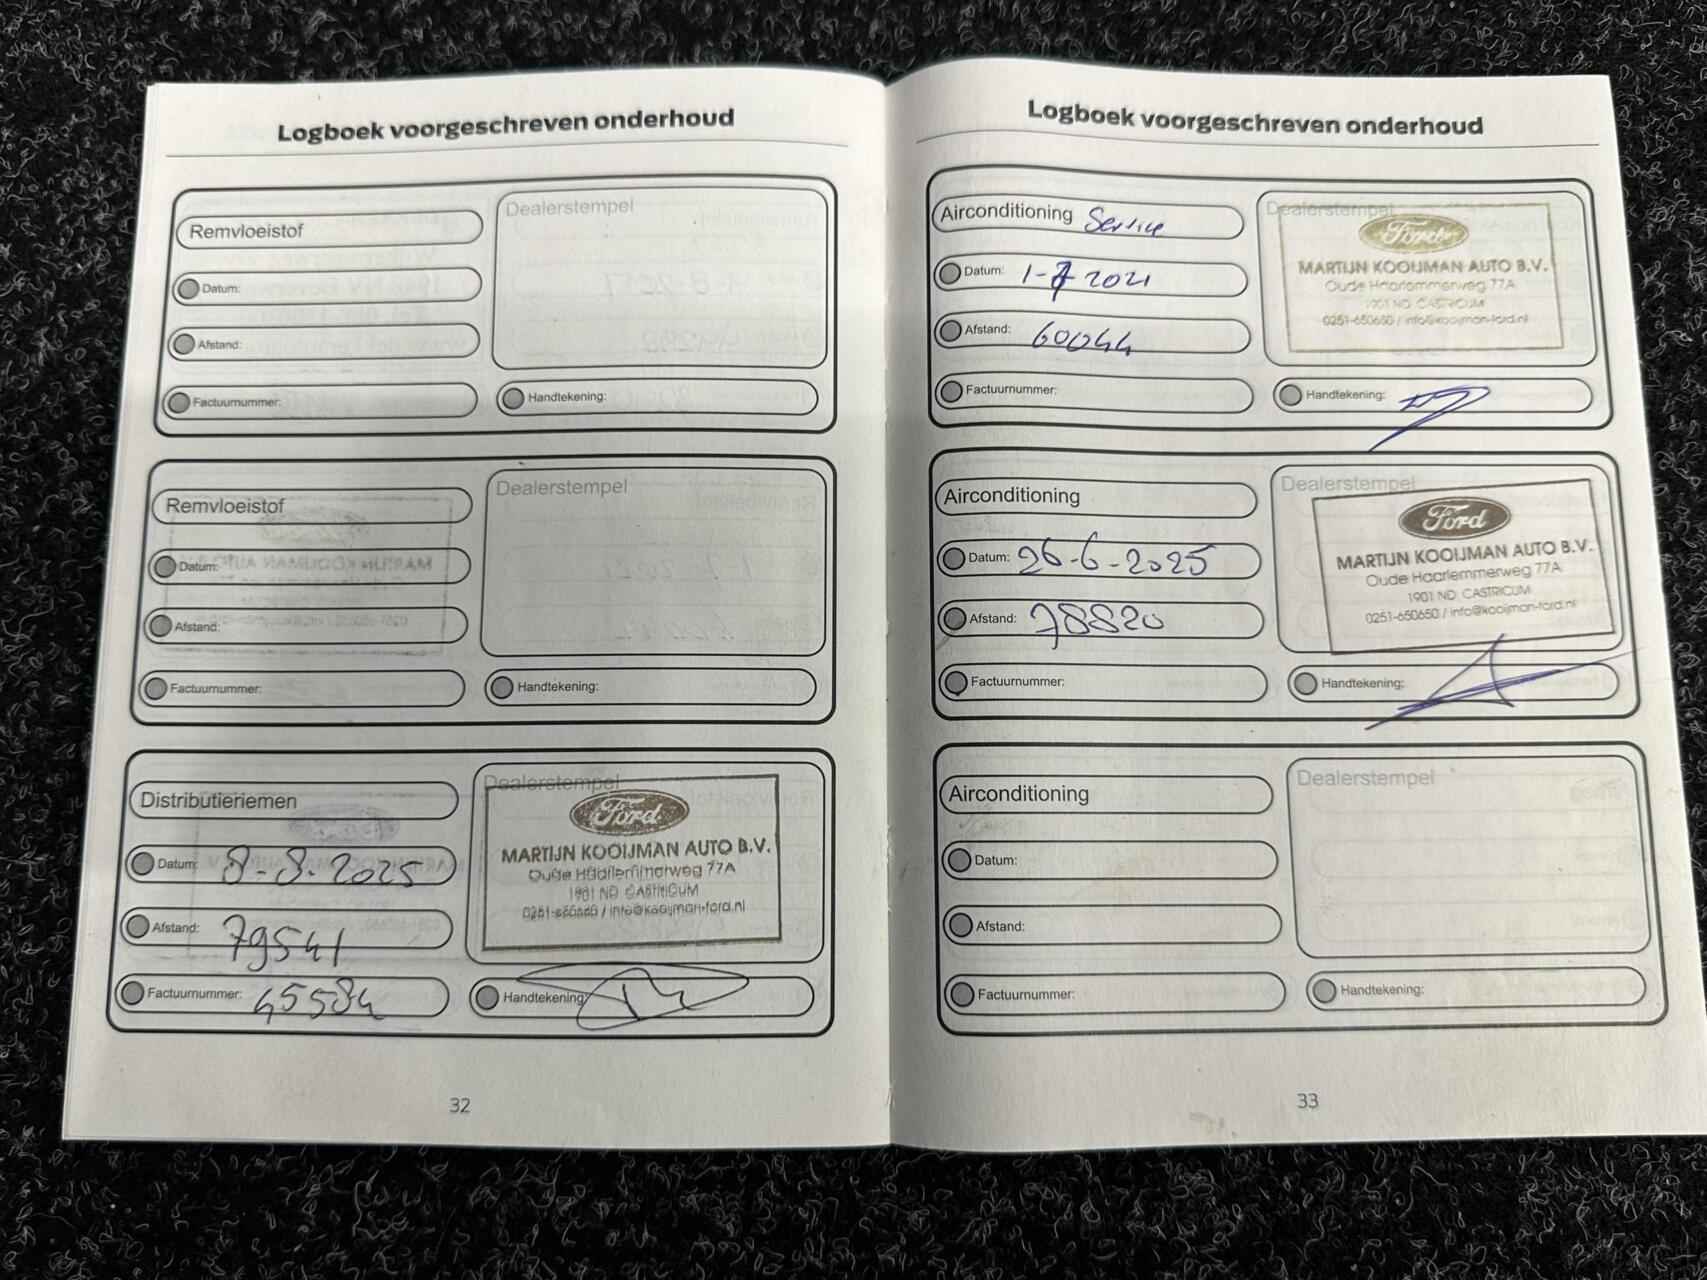 Logboek voorgeschreven onderhoud
Remvloeistof
Dealerstempel
Datum:
Afstand:
Factuurnummer:
Handtekening:
Remvloeistof
Dealerstempel
Datum:
Afstand:
Factuurnummer:
Handtekening:
Distributieriemen
Dealerstempel
Ford
MARTIJN KOOIJMAN AUTO B.V.
Oude Haarlemmerweg 77A
1901 ND CASTRICUM
0251-650650 / info@kooijman-ford.nl
Datum: 8-8-2025
Afstand: 79541
Factuurnummer: 45584
Handtekening:
32
Logboek voorgeschreven onderhoud
Airconditioning Service
Dealerstempel
Ford
MARTIJN KOOIJMAN AUTO B.V.
Oude Haarlemmerweg 77A
1901 ND CASTRICUM
0251-650650 / info@kooijman-ford.nl
Datum: 1-7 2021
Afstand: 60044
Factuurnummer:
Handtekening:
Airconditioning
Dealerstempel
Ford
MARTIJN KOOIJMAN AUTO B.V.
Oude Haarlemmerweg 77A
1901 ND CASTRICUM
0251-650650 / info@kooijman-ford.nl
Datum: 26-6-2025
Afstand: 78820
Factuurnummer:
Handtekening:
Airconditioning
Dealerstempel
Datum:
Afstand:
Factuurnummer:
Handtekening:
33